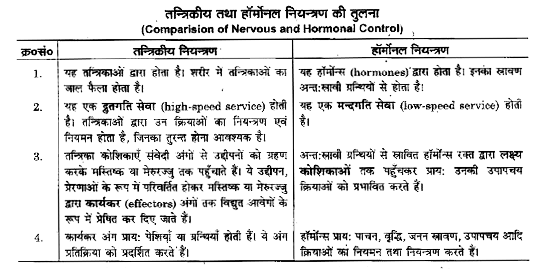 तन्त्रिकीय तथा हॉर्मोनल नियन्त्रण की तुलना
(Comparision of Nervous and Hormonal Control)
क्र०सं० तन्त्रिकीय नियन्त्रण हॉर्मोनल नियन्त्रण
1. यह तन्त्रिकाओं द्वारा होता है। शरीर में तन्त्रिकाओं का यह हॉर्मोन्स (hormones) द्वारा होता है। इनका स्रावण
जाल फैला होता है। अन्तःस्रावी ग्रन्थियों से होता है।
2. यह एक द्रुतगति सेवा (high-speed service) होती यह एक मन्दगति सेवा (low-speed service) होती
है। तन्त्रिकाओं द्वारा उन क्रियाओं का नियन्त्रण एवं है।
नियमन होता है, जिनका तुरन्त होना आवश्यक है।
3. तन्त्रिका कोशिकाएँ संवेदी अंगों से उद्दीपनों को ग्रहण अन्तःस्रावी ग्रन्थियों से स्रावित हॉर्मोन्स रक्त द्वारा लक्ष्य
करके मस्तिष्क या मेरुरज्जु तक पहुँचाते हैं। ये उद्दीपन, कोशिकाओं तक पहुँचकर प्रायः उनकी उपापचय
प्रेरणाओं के रूप में परिवर्तित होकर मस्तिष्क या मेरुरज्जु क्रियाओं को प्रभावित करते हैं।
द्वारा कार्यकर (effectors) अंगों तक विद्युत आवेगों के
रूप में प्रेषित कर दिए जाते हैं।
4. कार्यकर अंग प्रायः पेशियाँ या ग्रन्थियाँ होती हैं। ये अंग हॉर्मोन्स प्रायः पाचन, वृद्धि, जनन स्रावण, उपापचय आदि
प्रतिक्रिया को प्रदर्शित करते हैं। क्रियाओं का नियमन तथा नियन्त्रण करते हैं।